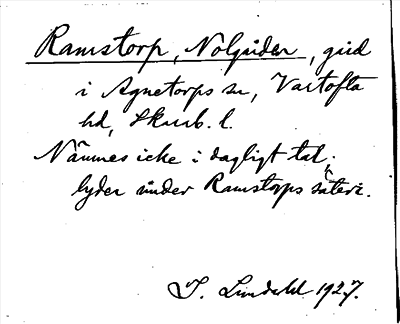 Ramstorp, Nolgården, gård
i Agnetorps sn, Vartofta
hd, Skarab. l.
Nämnes icke i dagligt tal;
lyder under Ramstorps säteri.
J. Lindahl 1927.